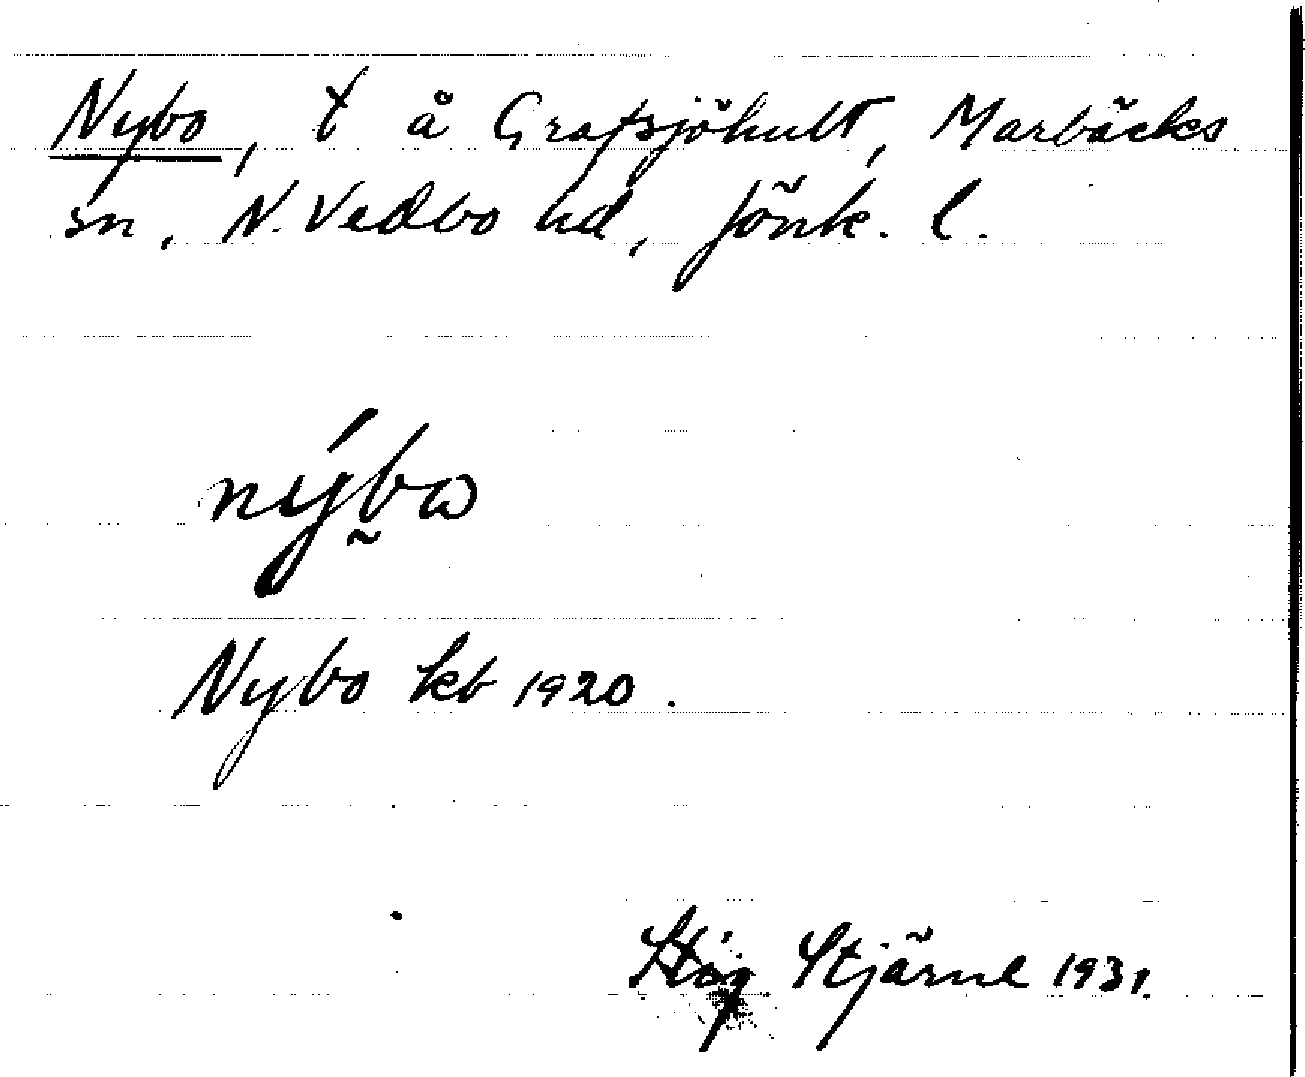 Nybo, t å Grafsjöhult, Marbäcks
sn, N. Vedbo hd, Jönk. l.
nýbω
Nybo kb 1920.
Stig Stjärne 1931.